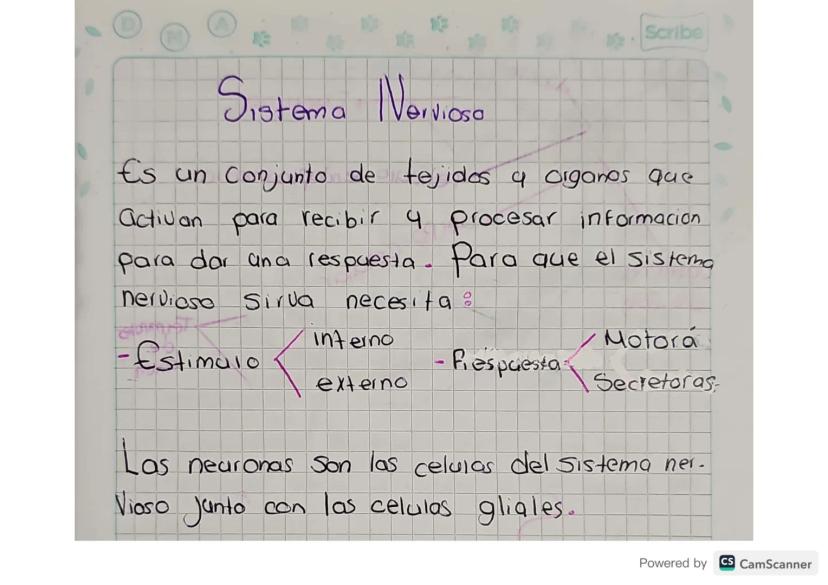 D M A
Scribe
Sistema Nervioso
Es un conjunto de tejidos y organos que
activan para recibir y procesar informacion
para dar una respuesta. Para que el sistema
nervioso sirva necesita:
- Estimulo < interno
externo
- Respuesta: < Motora
Secretoras.
Las neuronas son las celulas del sistema ner-
vioso junto con las celulas gliales.
Powered by CS CamScanner